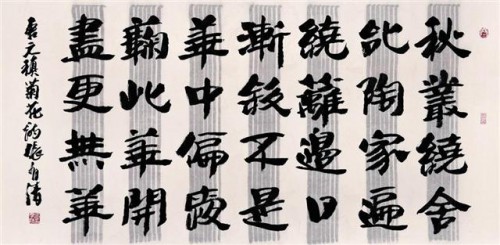 秋叢繞舍
似陶家遍
繞籬邊日
漸斜不是
華中偏愛
鞠此華開
盡更無華
唐元稹菊花詩張有清